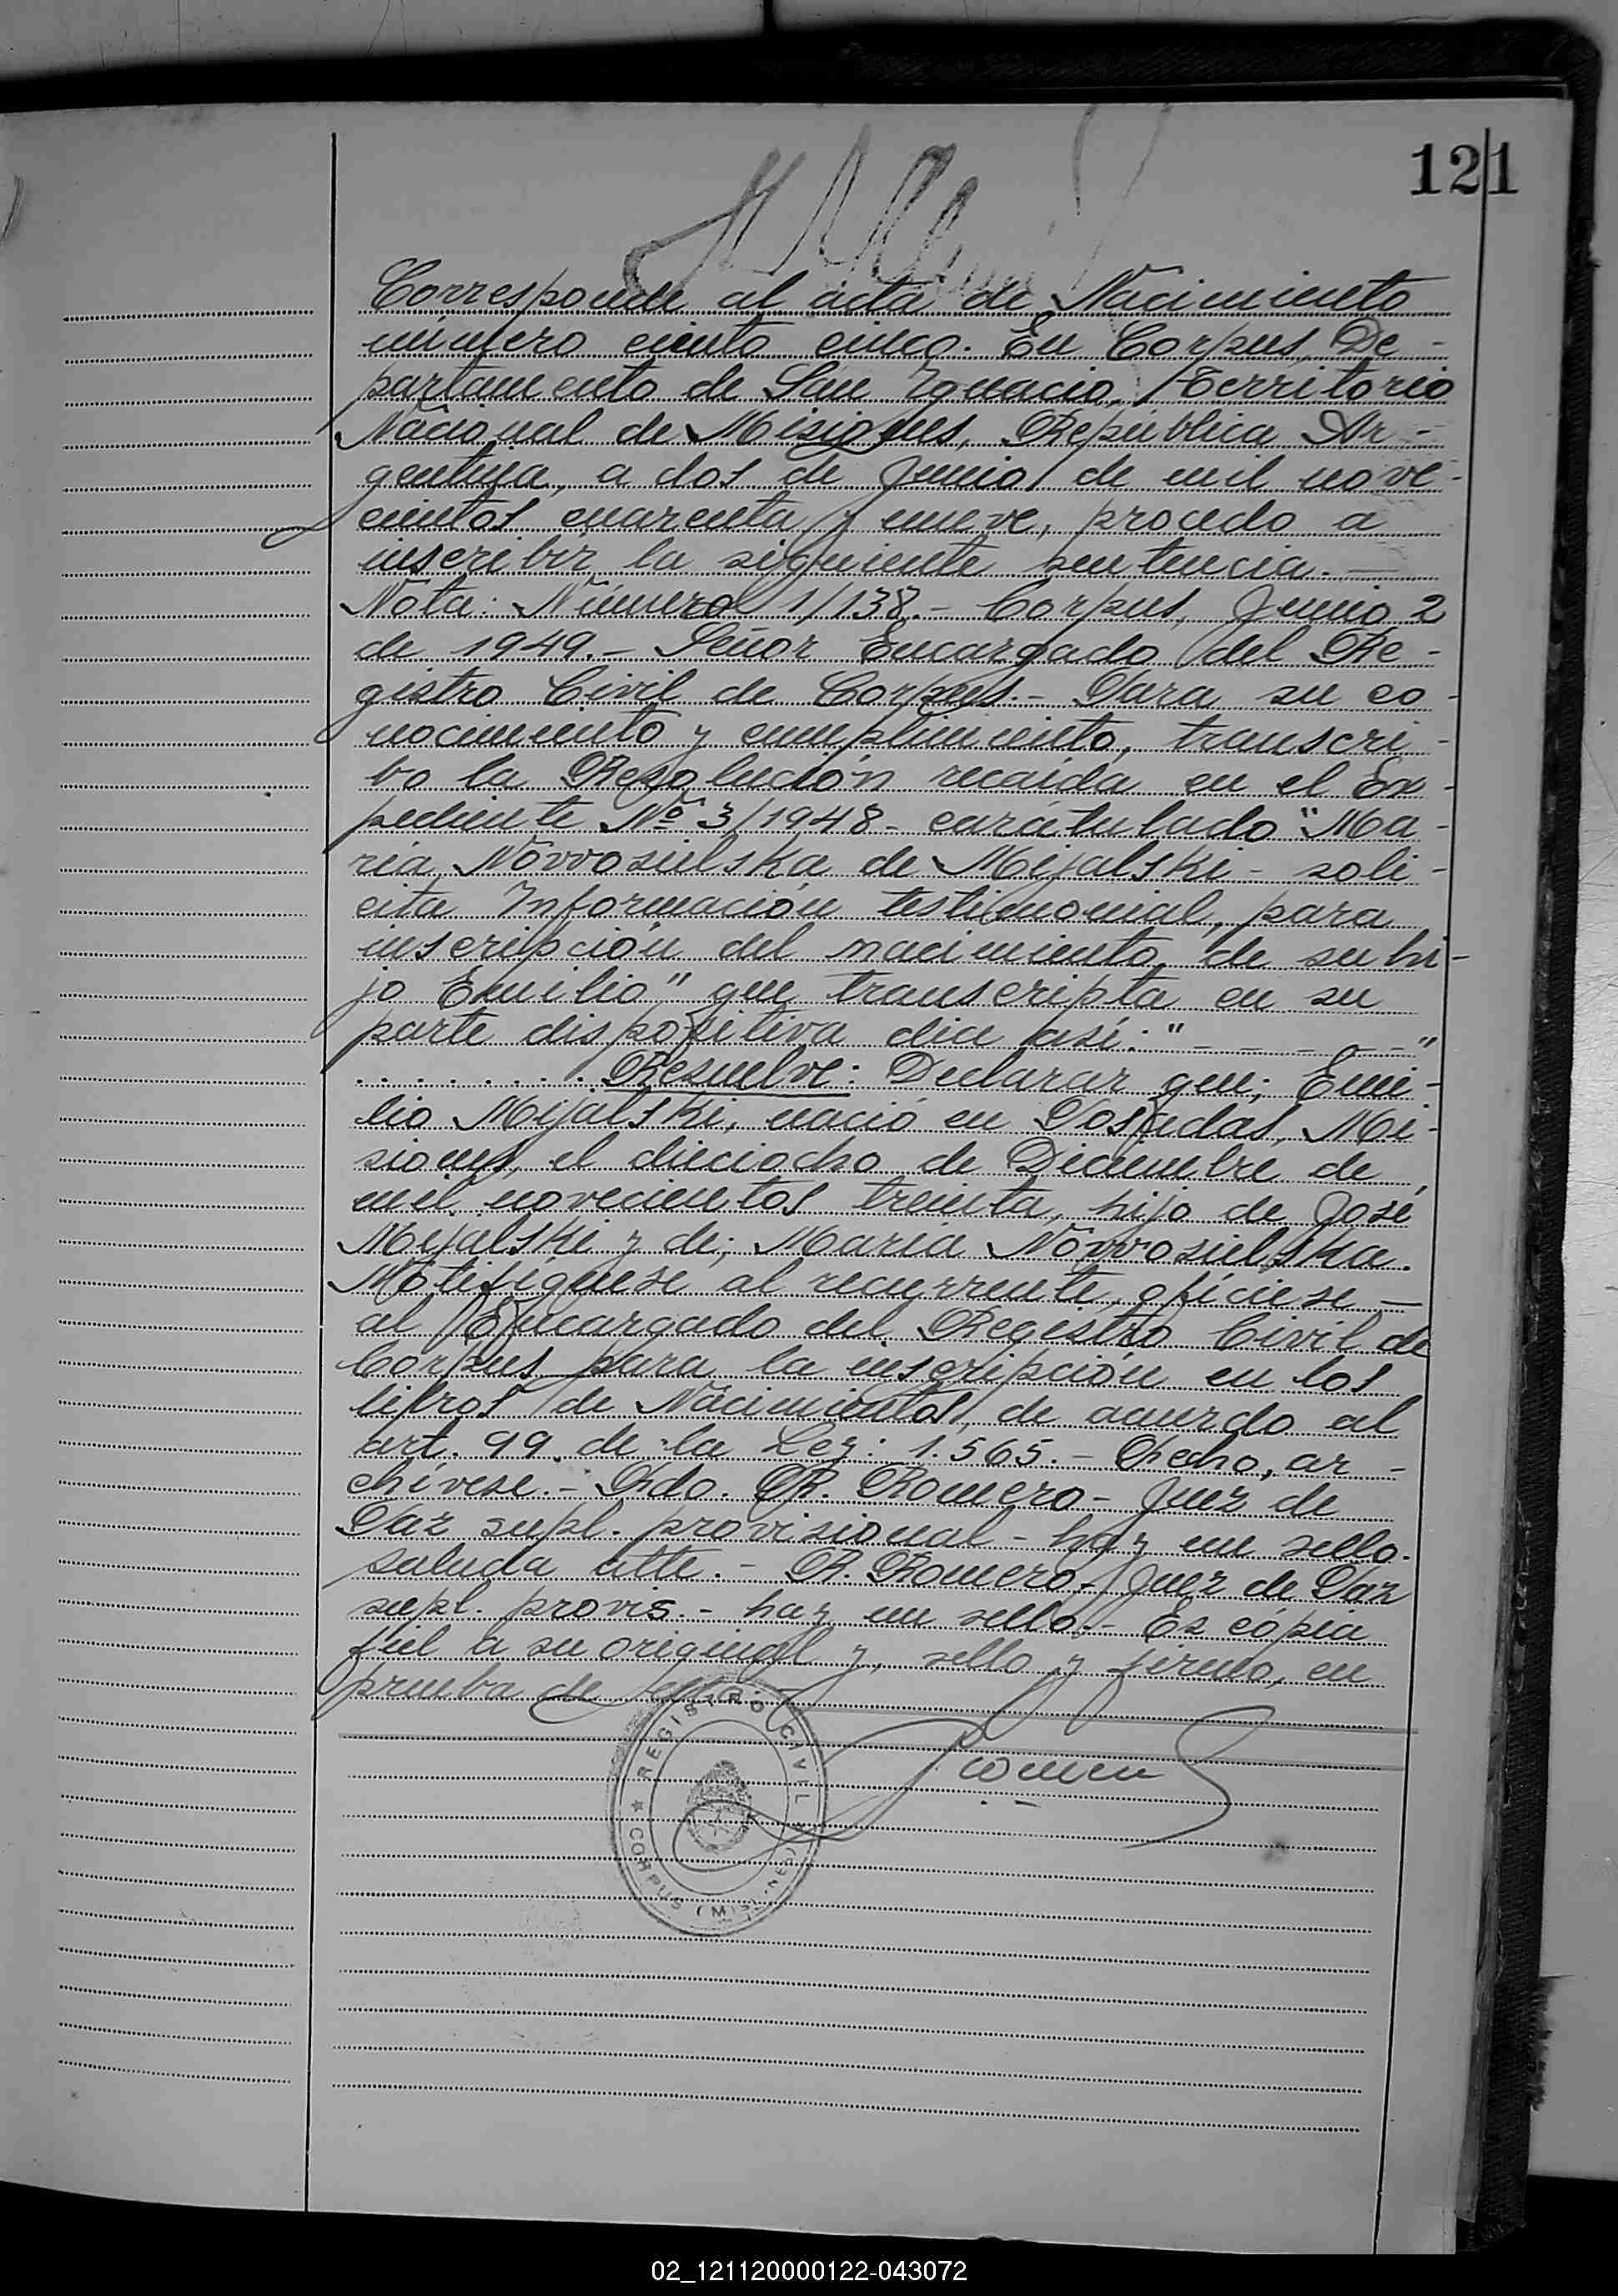 121
Corresponde al acta de Nacimiento
número ciento cinco. En Corpus, De-
partamento de San Ignacio, Territorio
Nacional de Misiones, República Ar-
gentina, a dos de Junio de mil nove-
cientos cuarenta y nueve, procedo a
inscribir la siguiente sentencia. —
Nota: Número 1/138.- Corpus, Junio 2
de 1949.- Señor Encargado del Re-
gistro Civil de Corpus.- Para su co-
nocimiento y cumplimiento, transcri-
bo la Resolución recaída en el Ex-
pediente Nº 3/1948- caratulado "Ma-
ría Novvosielska de Mijalski - soli-
cita Información testimonial, para
inscripción del nacimiento de su hi-
jo Emilio", que transcripta en su
parte dispositiva dice así: " - - - - - "
. . . . . . . . Resuelve: Declarar que; Emi-
lio Mijalski, nació en Posadas, Mi-
siones, el dieciocho de Diciembre de
mil novecientos treinta, hijo de José
Mijalski y de; María Novvosielska.
Notifíquese al recurrente, ofíciese —
al Encargado del Registro Civil de
Corpus para la inscripción en los
libros de Nacimientos, de acuerdo al
art. 99 de la Ley: 1.565.- Fecho, ar-
chívese.- Fdo. R. Romero - Juez de
Paz supl. provisional - hay un sello.
saluda atte.- R. Romero - Juez de Paz
supl. provis.- hay un sello.- Es cópia
fiel a su original y, sello y firmo, en
prueba de
REGISTRO CIVIL
CORPUS (MISIONES)
02_121120000122-043072